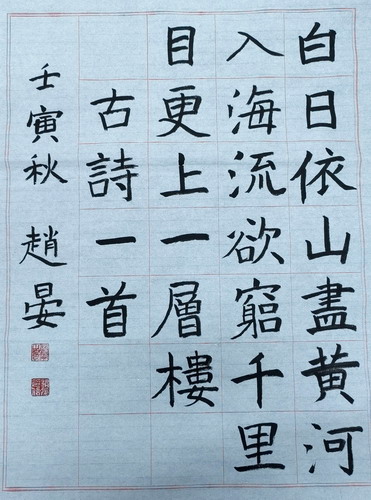 白日依山盡黄河
入海流欲窮千里
目更上一層樓
古詩一首
壬寅秋 趙晏